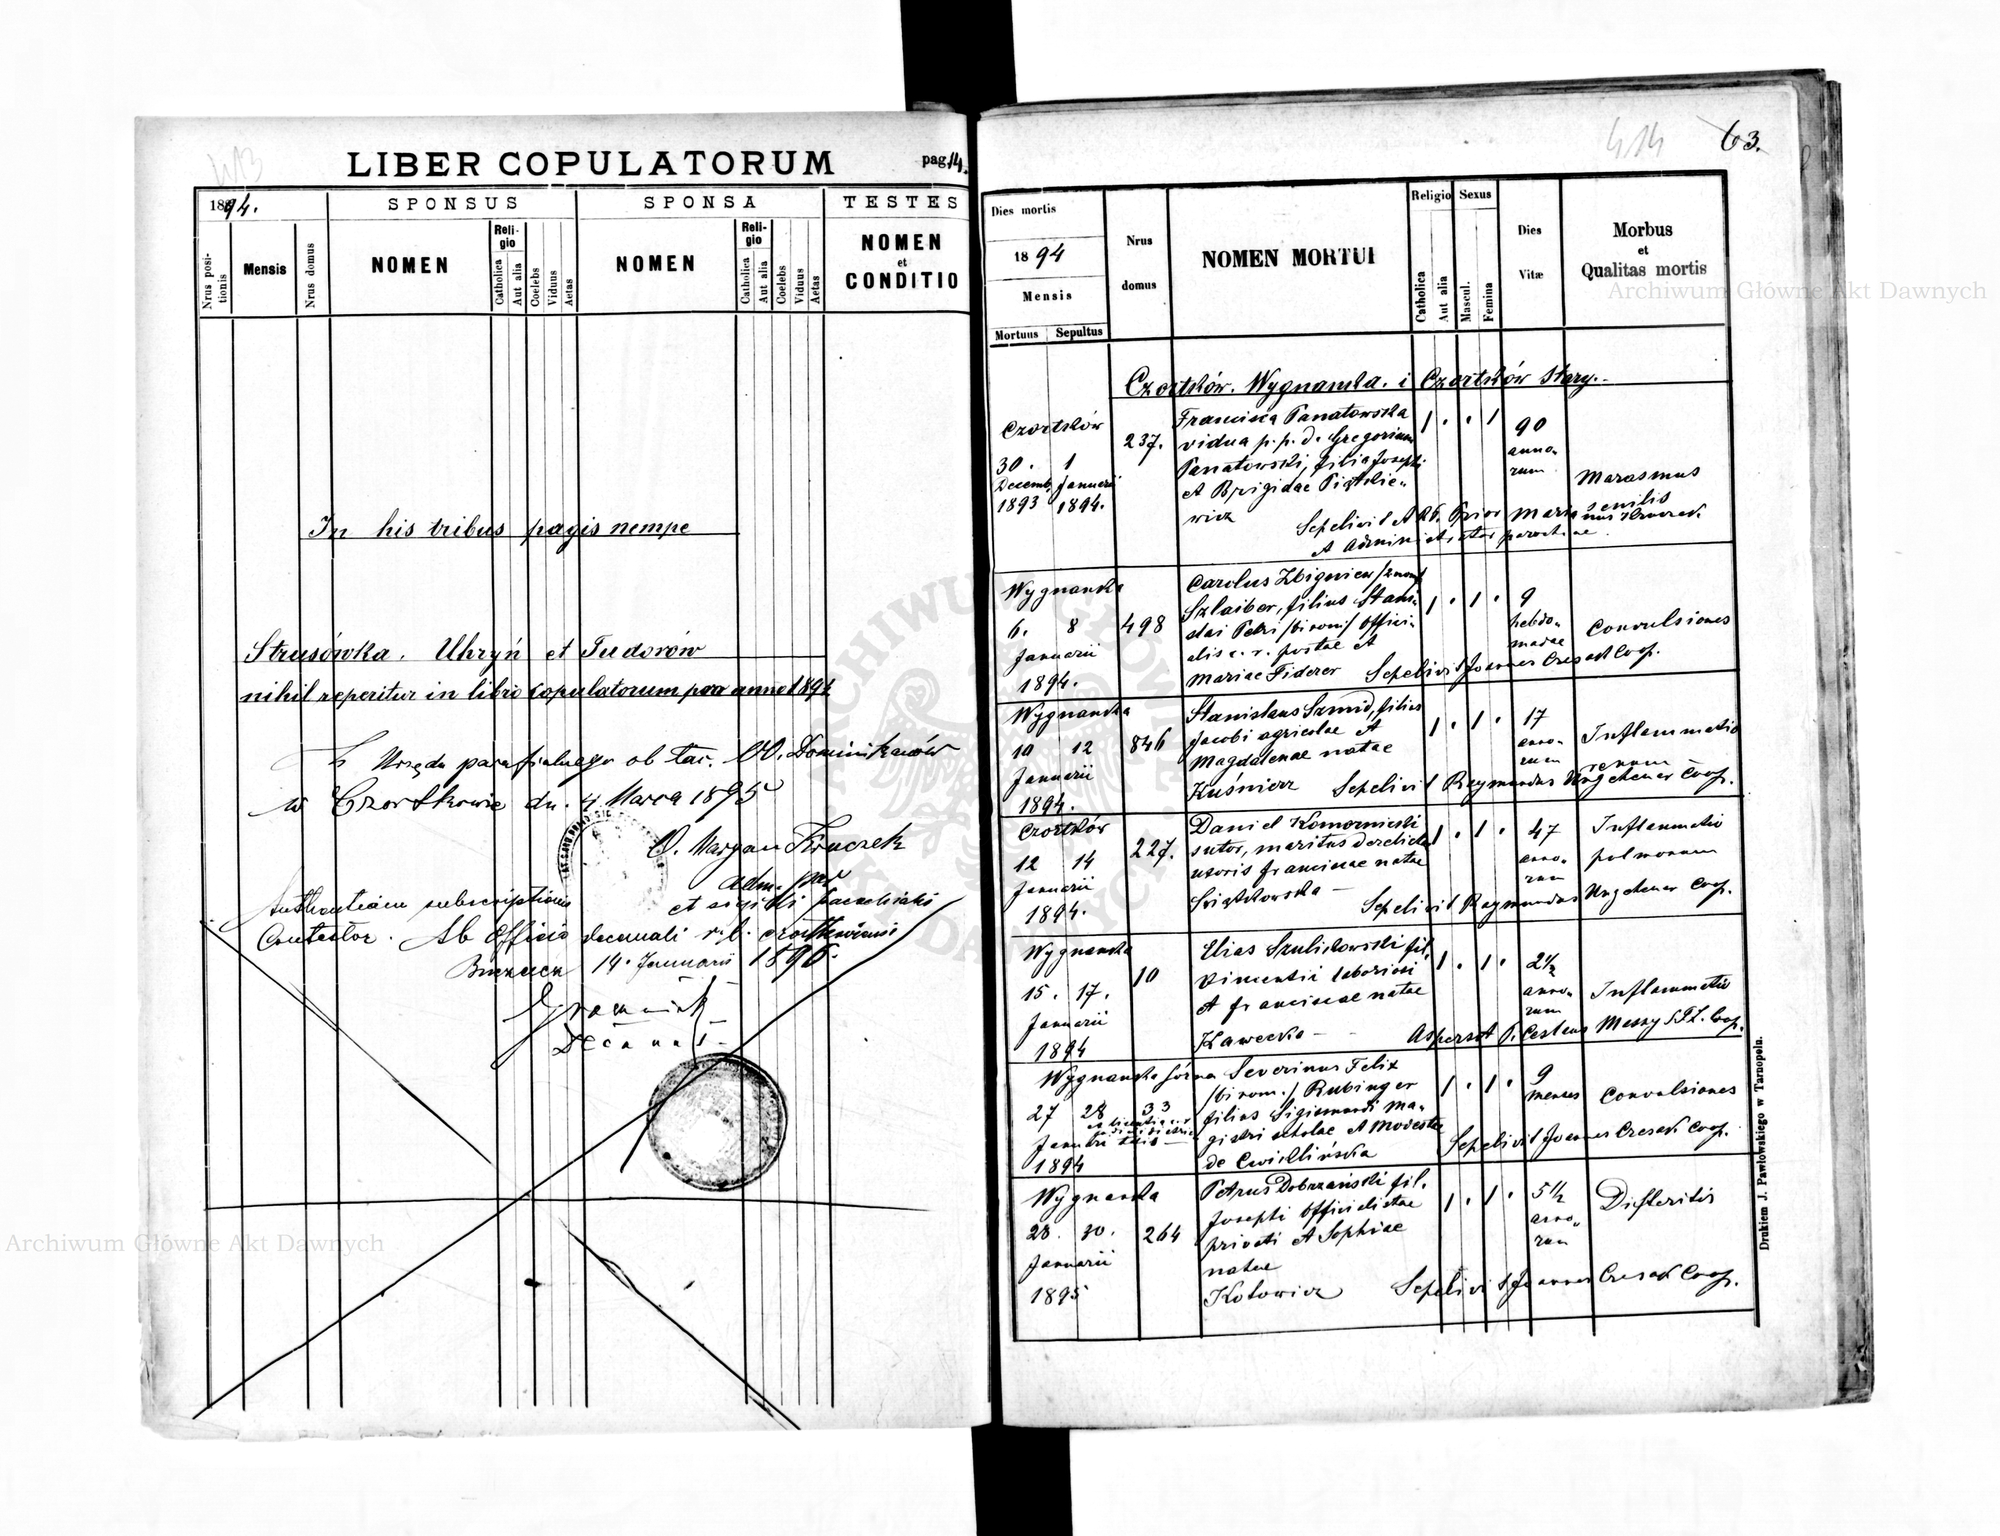 413
LIBER COPULATORUM pag. 14.
1894.
SPONSUS SPONSA TESTES
Nrus positionis
Mensis
Nrus domus
NOMEN
Religio
Catholica
Aut alia
Coelebs
Viduus
Aetas
NOMEN
Religio
Catholica
Aut alia
Coelebs
Viduus
Aetas
NOMEN
et
CONDITIO
In his tribus pagis nempe
Strusówka. Uhryń et Tudorów
nihil reperitur in libro copulatorum pro anno 1894
Z Urzędu parafialnego ob. łac. OO. Dominikanów
w Czortkowie dn. 4 Marca 1895
O. Maryan Kruczek
adm. par
Authenticam subscriptionem et sigilli parochialis
Contestor. Ab Officio decanali r. l. czortkoviensi
Buczacz 14. Januarii 1896.
Gromnicki
Decanus
414
63.
Dies mortis
1894
Mensis
Mortuus Sepultus
Nrus
domus
NOMEN MORTUI
Religio
Catholica
Aut alia
Sexus
Mascul.
Femina
Dies
Vitæ
Morbus
et
Qualitas mortis
Czortków. Wygnanka. i Czortków Stary.
Czortków
30. 1
Decemb. Januarii
1893 1894.
237.
Francisca Panatowska
vidua p. p. d. Gregorium
Panatowski, filia Josephi
et Brigidae Piątkie-
wicz
1 . . 1
90
anno-
rum
Marasmus
senilis
Sepelivit A. R. P. Prior Marianus Kruczek
et Administrator parochiae.
Wygnanka
6. 8
Januarii
1894.
498
Carolus Zbigniew /2 nom/
Szlaiber, filius Stani-
slai Petri /binom/ offici-
alis c. r. postae et
Mariae Fiderer
1 . 1 .
9
hebdo-
madae
Convulsiones
Sepelivit Joannes Czesak Coop.
Wygnanka
10 12
Januarii
1894.
846
Stanislaus Szmid, filius
Jacobi agricolae et
Magdalenae natae
Kuśnierz
1 . 1 .
17
anno-
rum
Inflammatio
renum
Sepelivit Raymundus Ungeheuer Coop.
Czortków
12 14
Januarii
1894.
227.
Daniel Komornicki
sutor, maritus derelictae
uxoris Franciscae natae
Świątkowska —
1 . 1 .
47
anno-
rum
Inflammatio
pulmonum
Sepelivit Raymundus Ungeheuer Coop.
Wygnanka
15. 17.
Januarii
1894
10
Elias Szulikowski fil.
Vincentii laboriosi
et Franciscae natae
Kawecka —
1 . 1 .
2½
anno-
rum
Inflammatio
Aspersit P. Ceslaus Meszy S.T.L. Coop.
Wygnanka Górna
27 28
Januarii
1894
33
Severinus Felix
/binom./ Rubinger
filius Sigismundi Ma-
gistri scholae et Modestae
de Cwiklińska
1 . 1 .
9
menses
Convulsiones
Sepelivit Joannes Czesak Coop.
Wygnanka
28. 30.
Januarii
1895
264
Petrus Dobrzański fil.
Josephi officialistae
privati et Sophiae
natae
Kotowicz
1 . 1 .
5½
anno-
rum
Difteritis
Sepelivit Joannes Czesak Coop.
Drukiem J. Pawłowskiego w Tarnopolu.
Archiwum Główne Akt Dawnych
Archiwum Główne Akt Dawnych
ARCHIWUM GŁÓWNE AKT DAWNYCH